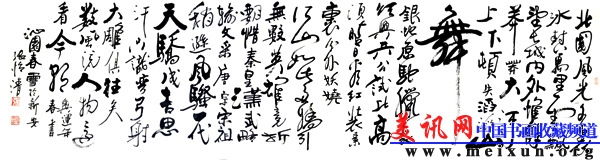 北國風光千
冰封萬里雪
望長城内外惟餘
莽莽大河
上下頓失滔滔
舞
銀蛇原馳蠟象
欲与天公試比高
須晴日看红裝素
裹分外妖嬈
江山如此多嬌引
無數英雄競折
腰惜秦皇漢武略
輸文采唐宗宋祖
稍遜風騷一代
天驕成吉思
汗只識彎弓射
大雕俱往矣
數風流人物還
看今朝
沁園春雪
春書
美讯网
中国书画收藏频道